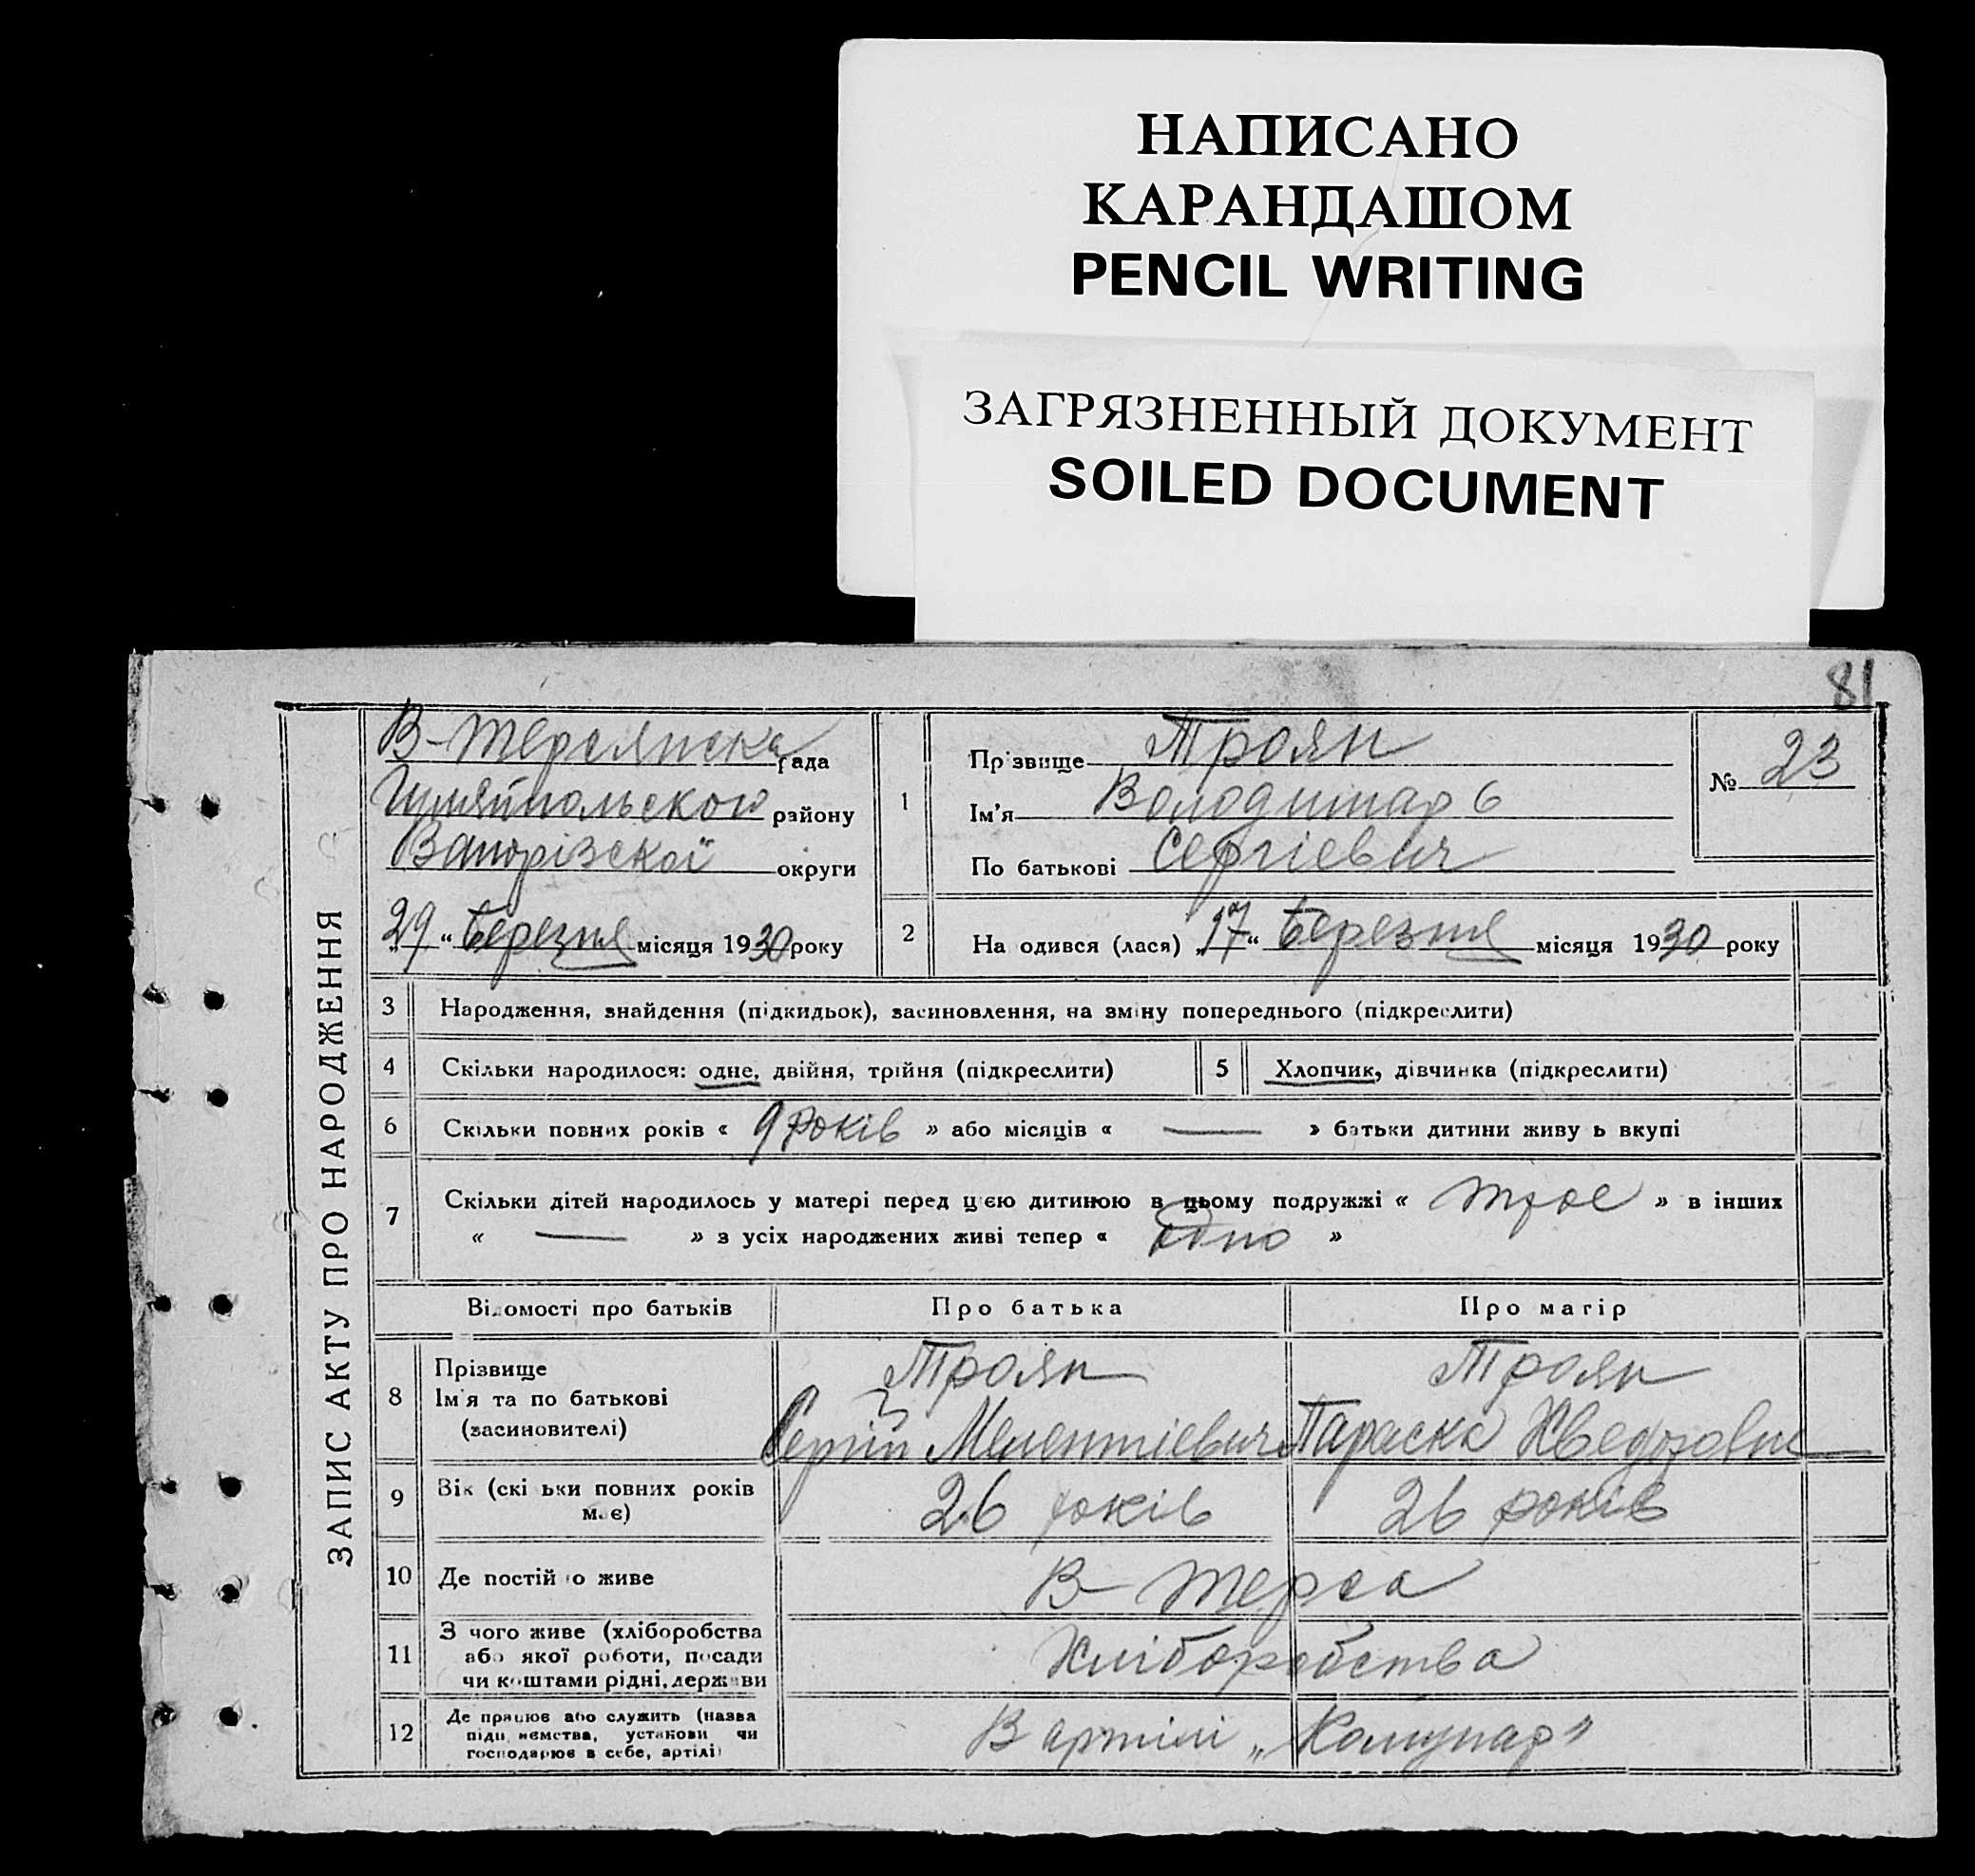 НАПИСАНО
КАРАНДАШОМ
PENCIL WRITING
ЗАГРЯЗНЕННЫЙ ДОКУМЕНТ
SOILED DOCUMENT
81
ЗАПИС АКТУ ПРО НАРОДЖЕННЯ
В-Терсянска рада
Гуляйпольского району
Запорізскої округи
„29“ Березня місяця 1930 року
1 Прізвище Троян
Ім'я Володимар
По батькові Сергієвич
№ 23
2 На одився (лася) „17“ Березня місяця 1930 року
3 Народження, знайдення (підкидьок), засиновлення, на зміну попереднього (підкреслити)
4 Скільки народилося: одне, двійня, трійня (підкреслити) 5 Хлопчик, дівчинка (підкреслити)
6 Скільки повних років « 9 років » або місяців « — » батьки дитини живу ь вкупі
7 Скільки дітей народилось у матері перед цією дитиною в цьому подружжі « троє » в інших
« — » з усіх народжених живі тепер « одно »
Відомості про батьків Про батька Про матір
8 Прізвище
Ім'я та по батькові
(засиновителі)
Троян
Сергій Мелентієвич
Троян
Параска Хведоровна
9 Вік (скі ьки повних років має)
26 років 26 років
10 Де постій о живе В-Терса
11 З чого живе (хліборобства
або якої роботи, посади
чи коштами рідні, держави
Хліборобства
12 Де працює або служить (назва
підп ємства, установи чи
господарює в себе, артілі)
В артілі „Комунар"